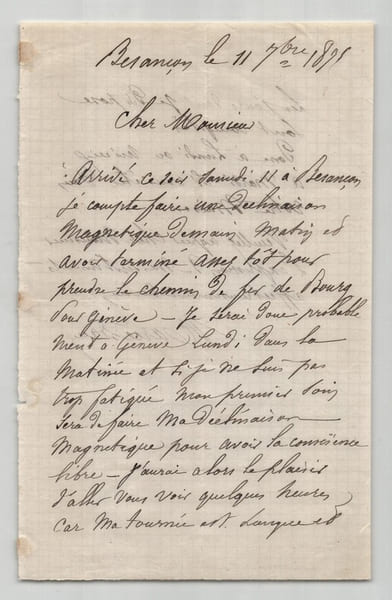 Besançon le 11 7bre 1895
Cher Monsieur
Arrivé ce soir Samedi 11 à Besançon
je compte faire une déclinaison
Magnetique demain Matin et
avoir terminé assez tôt pour
prendre le chemin de fer de Bourg
pour Géneve – Je serai donc probable
ment à Géneve Lundi dans la
Matinée et si je ne suis pas
trop fatigué mon premier soin
sera de faire Ma déclinaison
Magnetique pour avoir la conscience
libre – J'aurai alors le plaisir
d'aller vous voir quelques heures
car Ma tournée est longue et